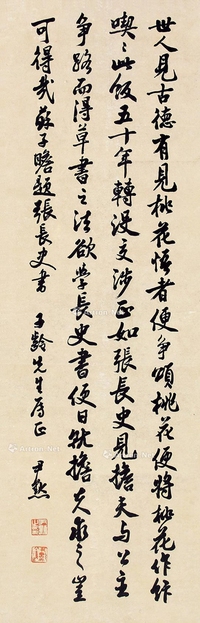 世人見古德有見桃花悟者便爭頌桃花便將桃花作飰
喫〻此飯五十年轉沒交涉正如張長史見擔夫与公主
爭路而得草書之法欲學長史書便日就擔夫求之豈
可得哉蘇子瞻題張長史書 子齡先生屬正 尹默